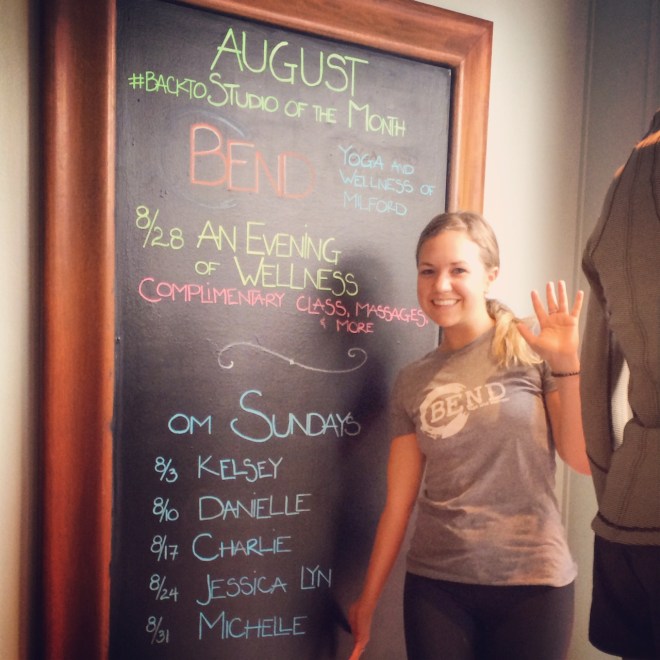 AUGUST
#BACKTOSTUDIO OF THE MONTH
BEND
YOGA AND
WELLNESS OF
MILFORD
8/28 AN EVENING
OF WELLNESS
COMPLIMENTARY CLASS, MASSAGES,
& MORE
OM SUNDAYS
8/3 KELSEY
8/10 DANIELLE
8/17 CHARLIE
8/24 JESSICA LYN
8/31 MICHELLE
BEND